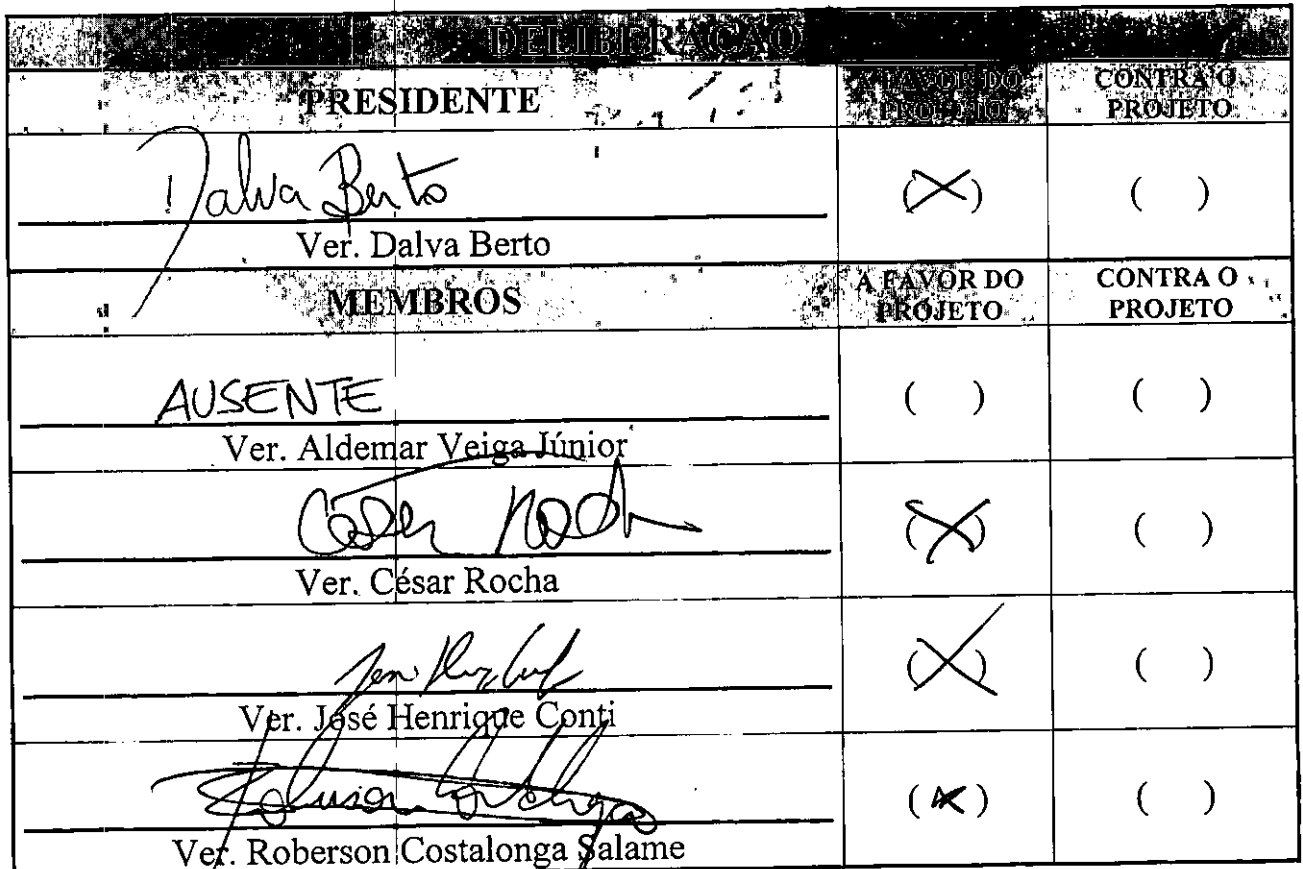 DELIBERAÇÃO
PRESIDENTE
A FAVOR DO PROJETO
CONTRA O PROJETO
Dalva Berto
(X)
( )
Ver. Dalva Berto
MEMBROS
A FAVOR DO PROJETO
CONTRA O PROJETO
AUSENTE
( )
( )
Ver. Aldemar Veiga Júnior
César Rocha
(X)
( )
Ver. César Rocha
(X)
( )
Ver. José Henrique Conti
(X)
( )
Ver. Roberson Costalonga Salame